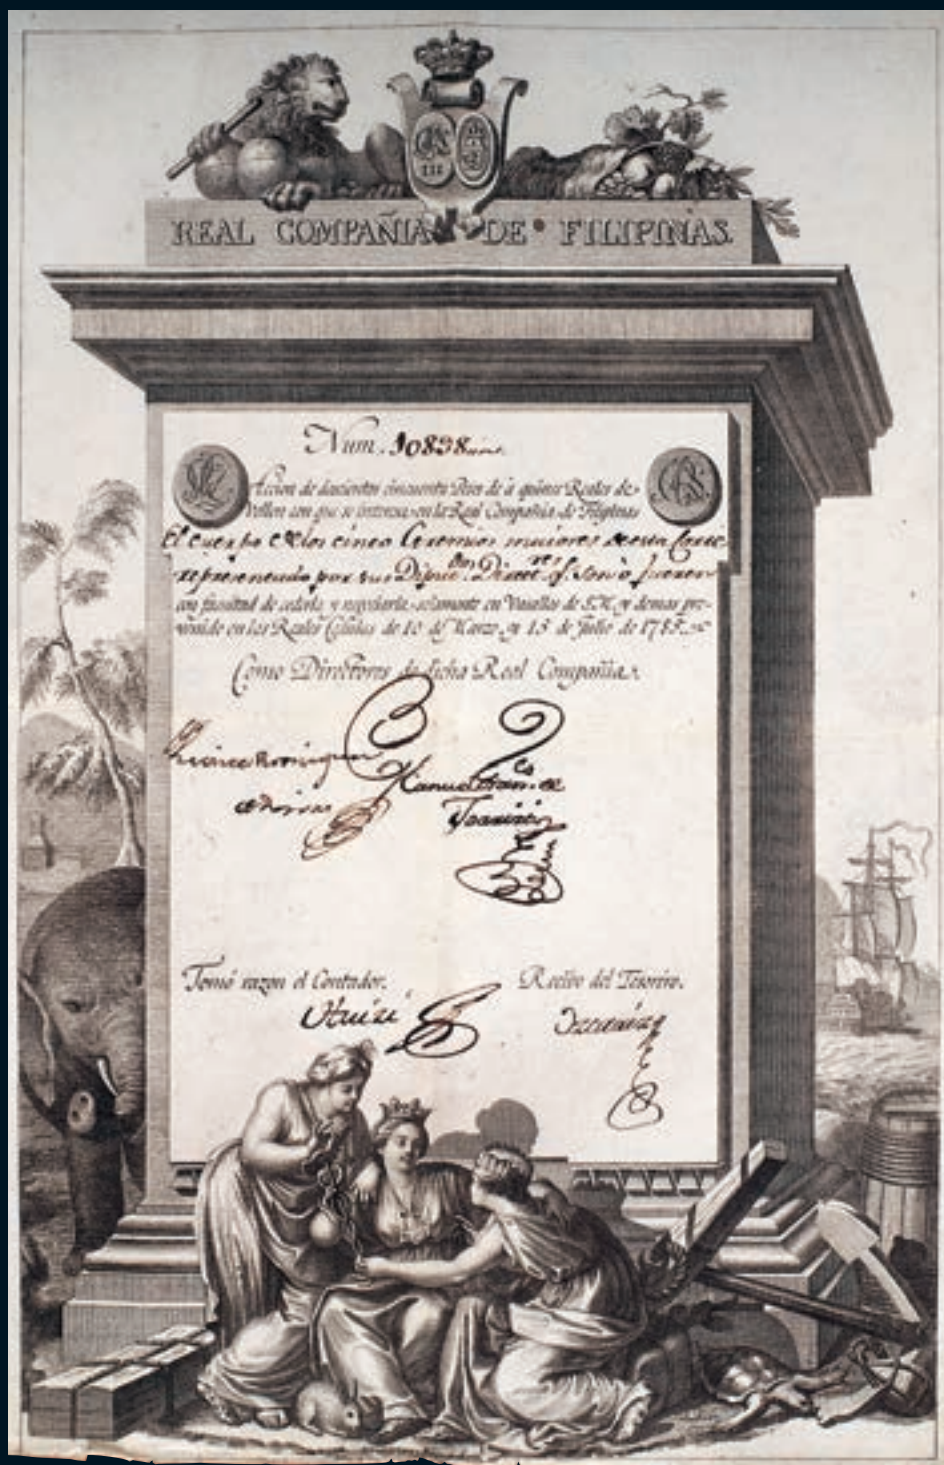 REAL COMPAÑIA DE FILIPINAS.
Num. 10838
Accion de doscientos cincuenta Pesos de à quince Reales de
Vellon con que se interesa en la Real Compañia de Filipinas
El cuerpo de los cinco Gremios maiores de esta Corte
representado por sus Diput.dos Direct.res q.e son ò fueren
con facultad de cederla y negociarla solamente en Vasallos de S.M. y demas pre-
venido en las Reales Cédulas de 10 de Marzo y 15 de Julio de 1785.
Como Directores de dicha Real Compañia.
Manuel Fran.co de
Tomó razon el Contador.
Recibo del Tesorero.